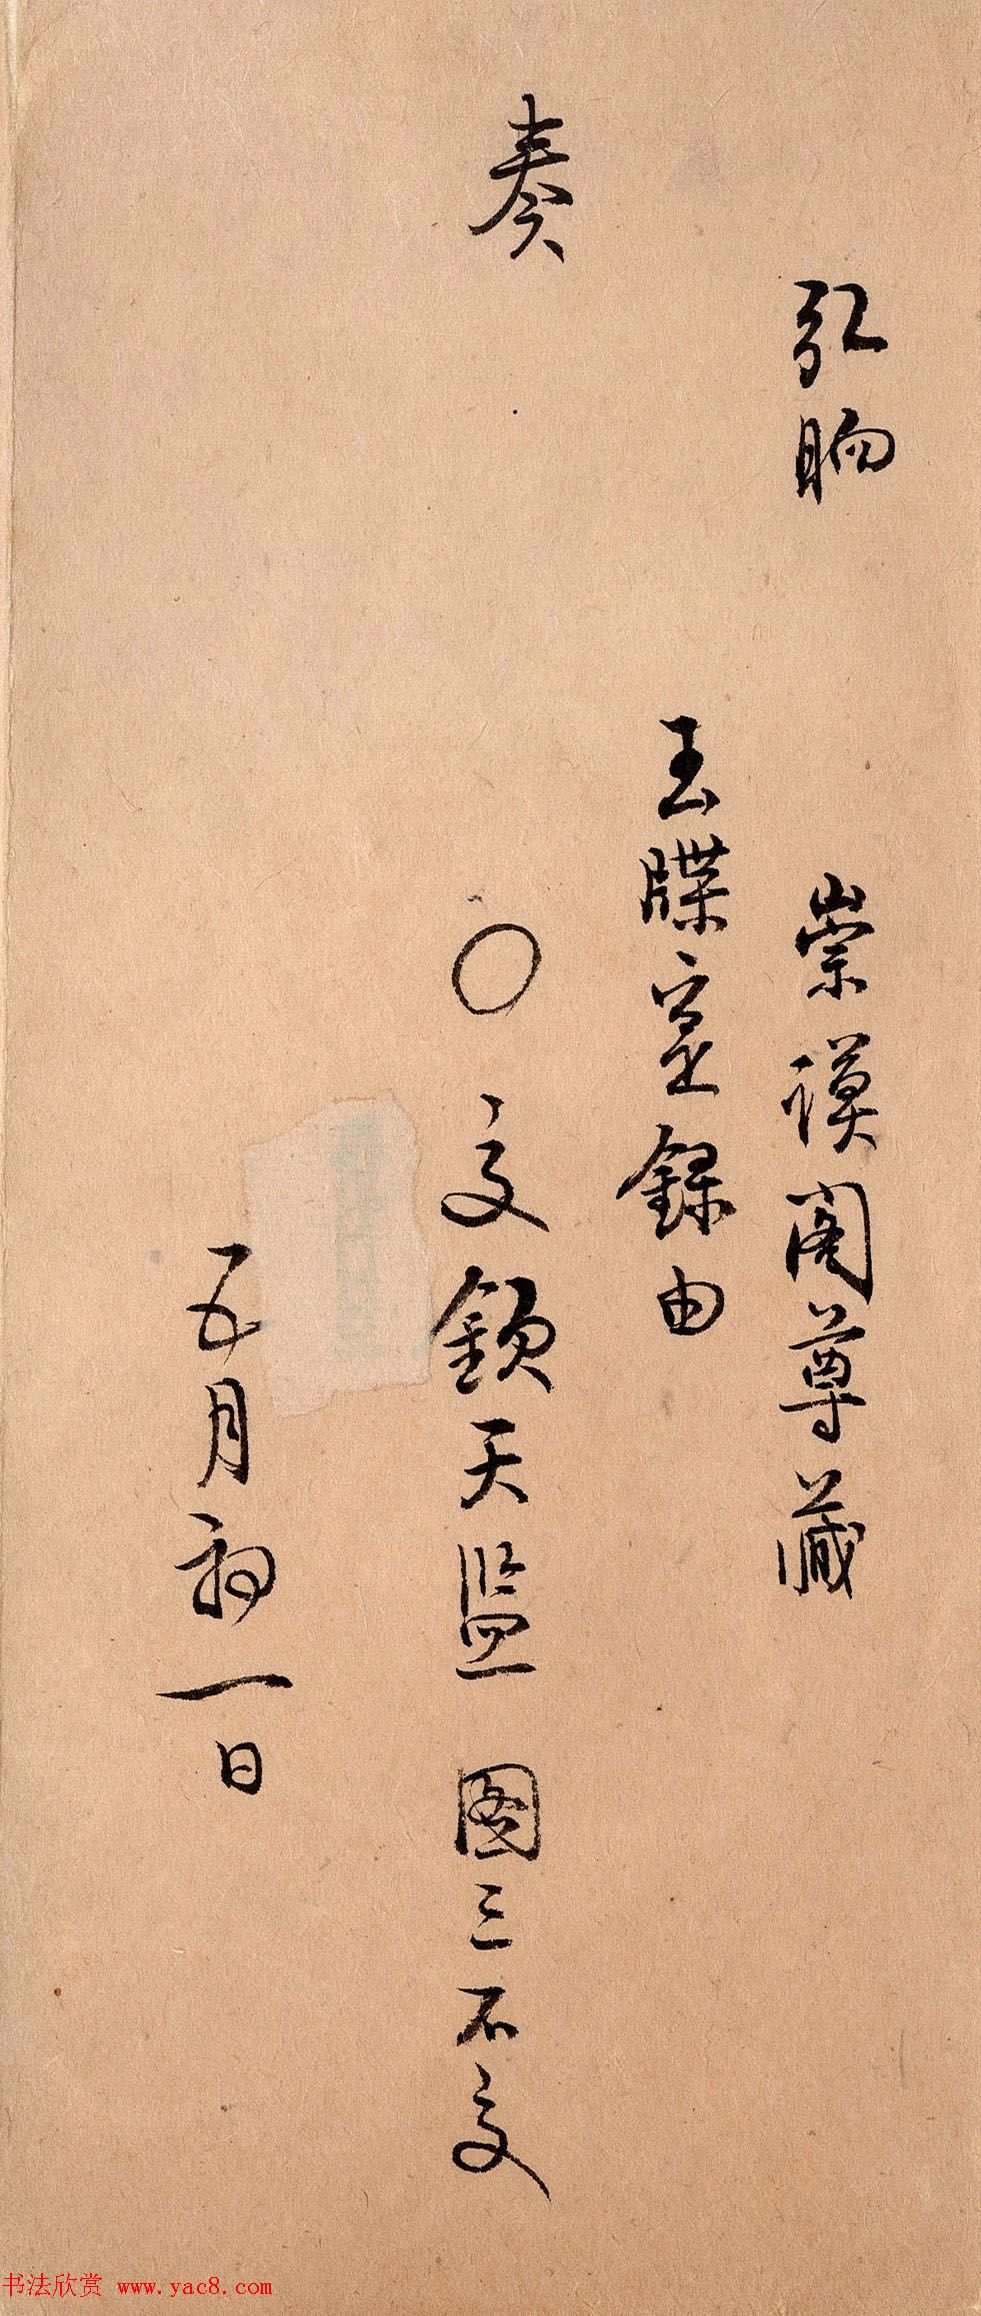 弘晌
崇謨阁尊藏
玉牒寔錄由
奏
○交鎖天監 图三不交
五月初一日
书法欣赏 www.yac8.com